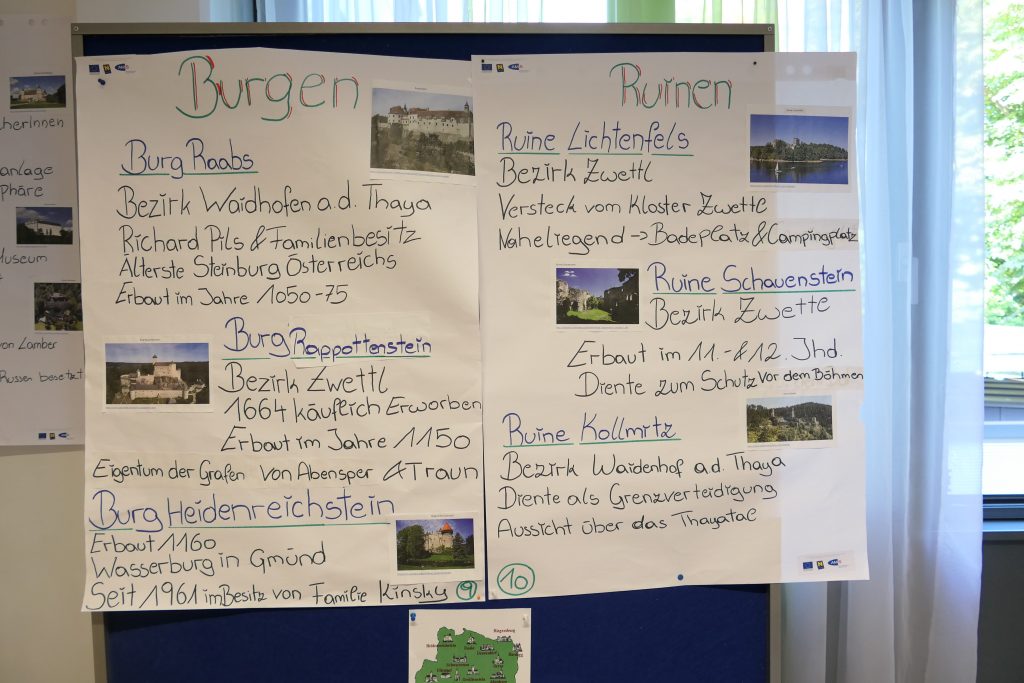 herInnen
anlage
Phäre
Museum
von Lamber
Russen besetzt
Burgen
Burg Raabs
Bezirk Waidhofen a.d. Thaya
Richard Pils & Familienbesitz
Älterste Steinburg Österreichs
Erbaut im Jahre 1050-75
Burg Rappottenstein
Bezirk Zwettl
1664 käuflich Erworben
Erbaut im Jahre 1150
Eigentum der Grafen von Abensper & Traun
Burg Heidenreichstein
Erbaut 1160
Wasserburg in Gmünd
Seit 1961 im Besitz von Familie Kinsky
9
Ruinen
Ruine Lichtenfels
Bezirk Zwettl
Versteck vom Kloster Zwettl
Naheliegend → Badeplatz & Campingplatz
Ruine Schauenstein
Bezirk Zwettl
Erbaut im 11.-& 12. Jhd.
Diente zum Schutz vor dem Böhmen
Ruine Kollmitz
Bezirk Waidenhof a.d. Thaya
Diente als Grenzverteidigung
Aussicht über das Thayatal
10